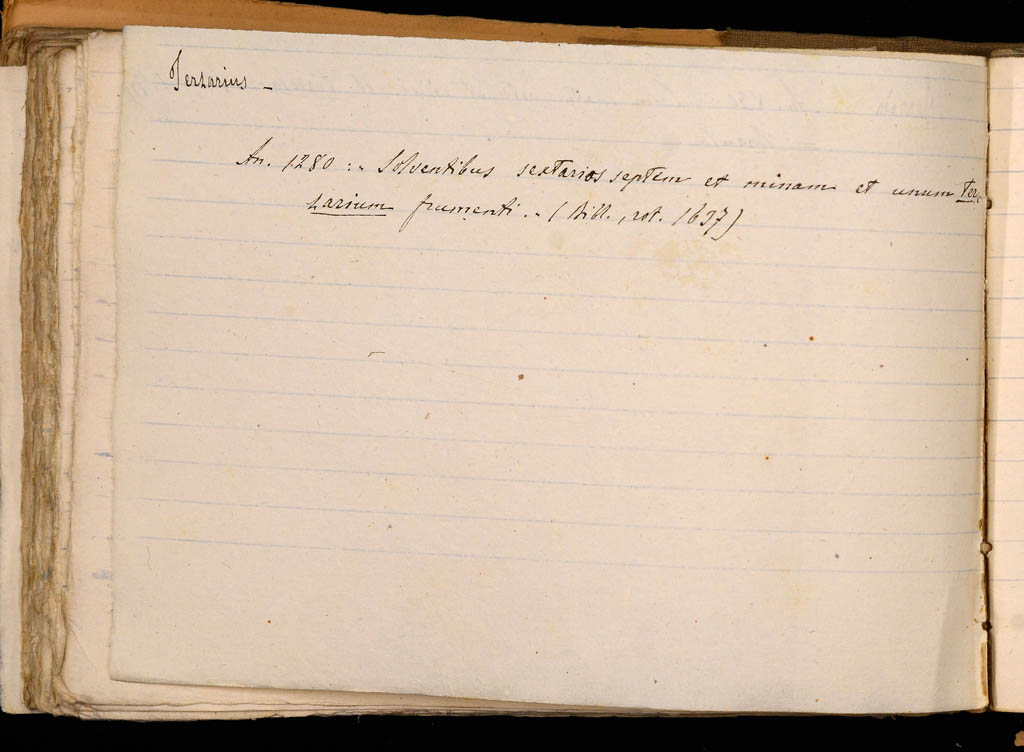 Tertarius -
An. 1280 : " Solventibus sextarios septem et minam et unum ter-
tarium frumenti. " ( Bill., rot. 1637)